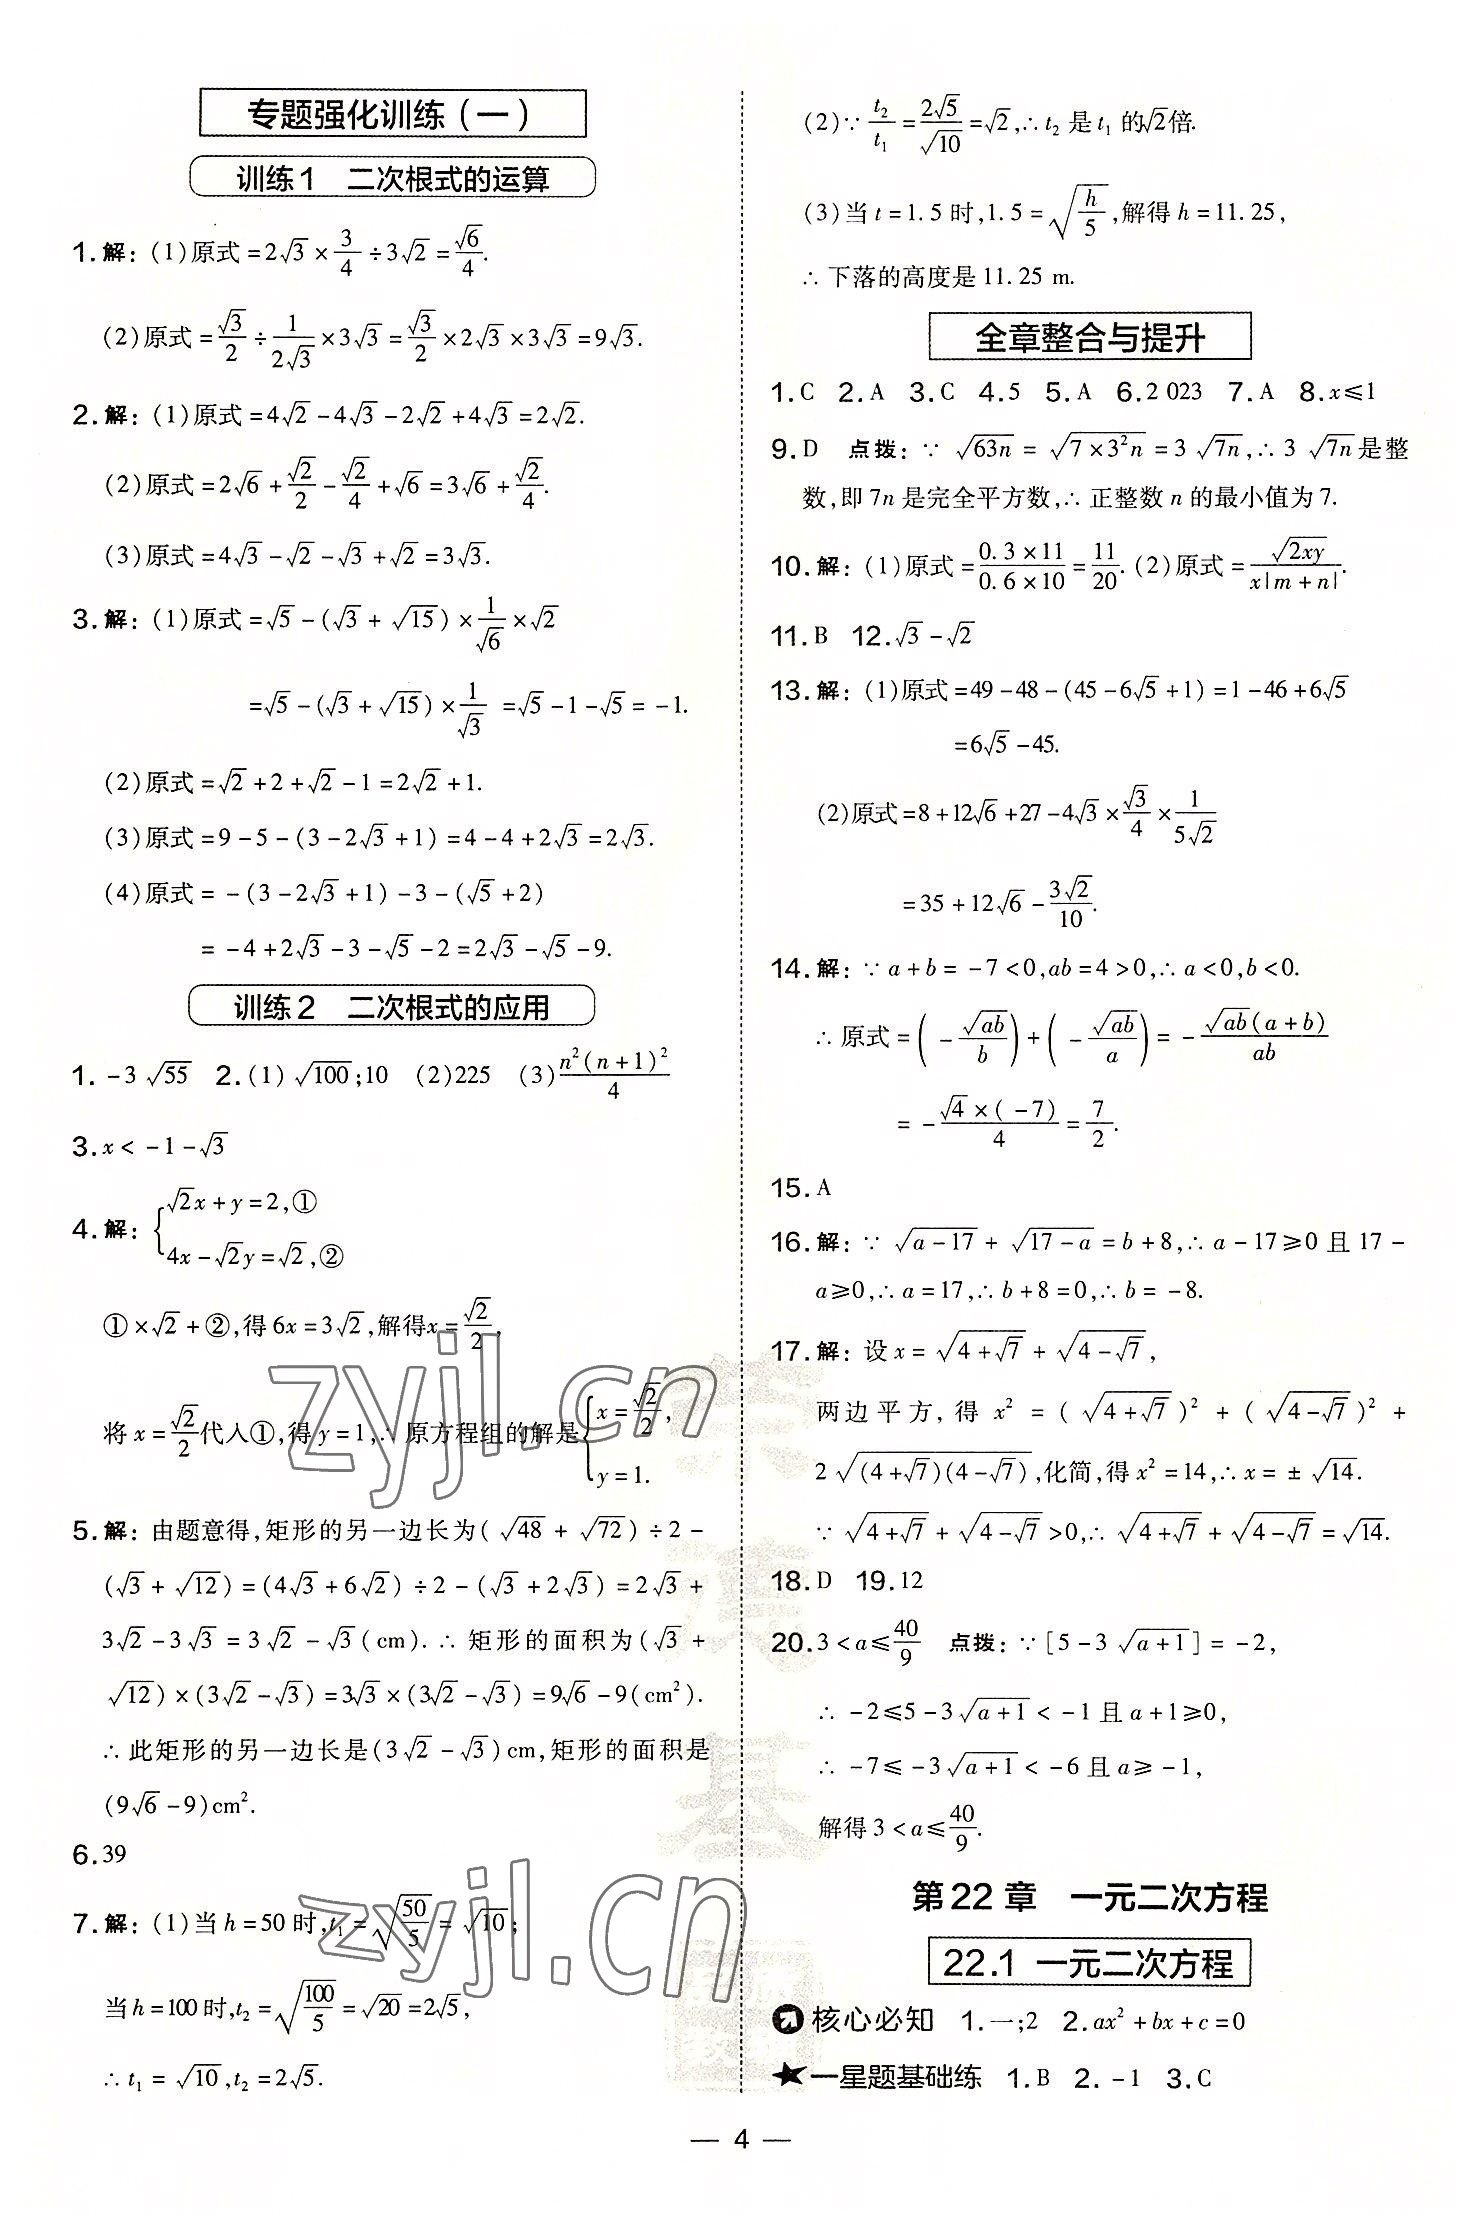 专题强化训练(一)
训练1　二次根式的运算
1.解：(1)原式=2√3×3/4÷3√2=√6/4.
(2)原式=√3/2÷1/(2√3)×3√3=√3/2×2√3×3√3=9√3.
2.解：(1)原式=4√2-4√3-2√2+4√3=2√2.
(2)原式=2√6+√2/2-√2/4+√6=3√6+√2/4.
(3)原式=4√3-√2-√3+√2=3√3.
3.解：(1)原式=√5-(√3+√15)×1/√6×√2
=√5-(√3+√15)×1/√3=√5-1-√5=-1.
(2)原式=√2+2+√2-1=2√2+1.
(3)原式=9-5-(3-2√3+1)=4-4+2√3=2√3.
(4)原式=-(3-2√3+1)-3-(√5+2)
=-4+2√3-3-√5-2=2√3-√5-9.
训练2　二次根式的应用
1.-3√55　2.(1)√100;10　(2)225　(3)n²(n+1)²/4
3.x<-1-√3
4.解：{√2x+y=2,①
4x-√2y=√2,②
①×√2+②,得6x=3√2,解得x=√2/2,
将x=√2/2代入①,得y=1,∴原方程组的解是{x=√2/2,
y=1.
5.解：由题意得,矩形的另一边长为(√48+√72)÷2-
(√3+√12)=(4√3+6√2)÷2-(√3+2√3)=2√3+
3√2-3√3=3√2-√3(cm).∴矩形的面积为(√3+
√12)×(3√2-√3)=3√3×(3√2-√3)=9√6-9(cm²).
∴此矩形的另一边长是(3√2-√3)cm,矩形的面积是
(9√6-9)cm².
6.39
7.解：(1)当h=50时,t₁=√(50/5)=√10;
当h=100时,t₂=√(100/5)=√20=2√5,
∴t₁=√10,t₂=2√5.
(2)∵t₂/t₁=2√5/√10=√2,∴t₂是t₁的√2倍.
(3)当t=1.5时,1.5=√(h/5),解得h=11.25,
∴下落的高度是11.25 m.
全章整合与提升
1.C　2.A　3.C　4.5　5.A　6.2 023　7.A　8.x≤1
9.D　点拨：∵√(63n)=√(7×3²n)=3√(7n),∴3√(7n)是整
数,即7n是完全平方数,∴正整数n的最小值为7.
10.解：(1)原式=(0.3×11)/(0.6×10)=11/20.(2)原式=√(2xy)/(x|m+n|).
11.B　12.√3-√2
13.解：(1)原式=49-48-(45-6√5+1)=1-46+6√5
=6√5-45.
(2)原式=8+12√6+27-4√3×√3/4×1/(5√2)
=35+12√6-3√2/10.
14.解：∵a+b=-7<0,ab=4>0,∴a<0,b<0.
∴原式=(-√(ab)/b)+(-√(ab)/a)=-√(ab)(a+b)/(ab)
=-(√4×(-7))/4=7/2.
15.A
16.解：∵√(a-17)+√(17-a)=b+8,∴a-17≥0且17-
a≥0,∴a=17,∴b+8=0,∴b=-8.
17.解：设x=√(4+√7)+√(4-√7),
两边平方,得x²=(√(4+√7))²+(√(4-√7))²+
2√((4+√7)(4-√7)),化简,得x²=14,∴x=±√14.
∵√(4+√7)+√(4-√7)>0,∴√(4+√7)+√(4-√7)=√14.
18.D　19.12
20.3<a≤40/9　点拨：∵[5-3√(a+1)]=-2,
∴-2≤5-3√(a+1)<-1且a+1≥0,
∴-7≤-3√(a+1)<-6且a≥-1,
解得3<a≤40/9.
第22章　一元二次方程
22.1　一元二次方程
核心必知　1.一;2　2.ax²+bx+c=0
一星题基础练　1.B　2.-1　3.C
— 4 —
zyjl.cn
zyjl.cn